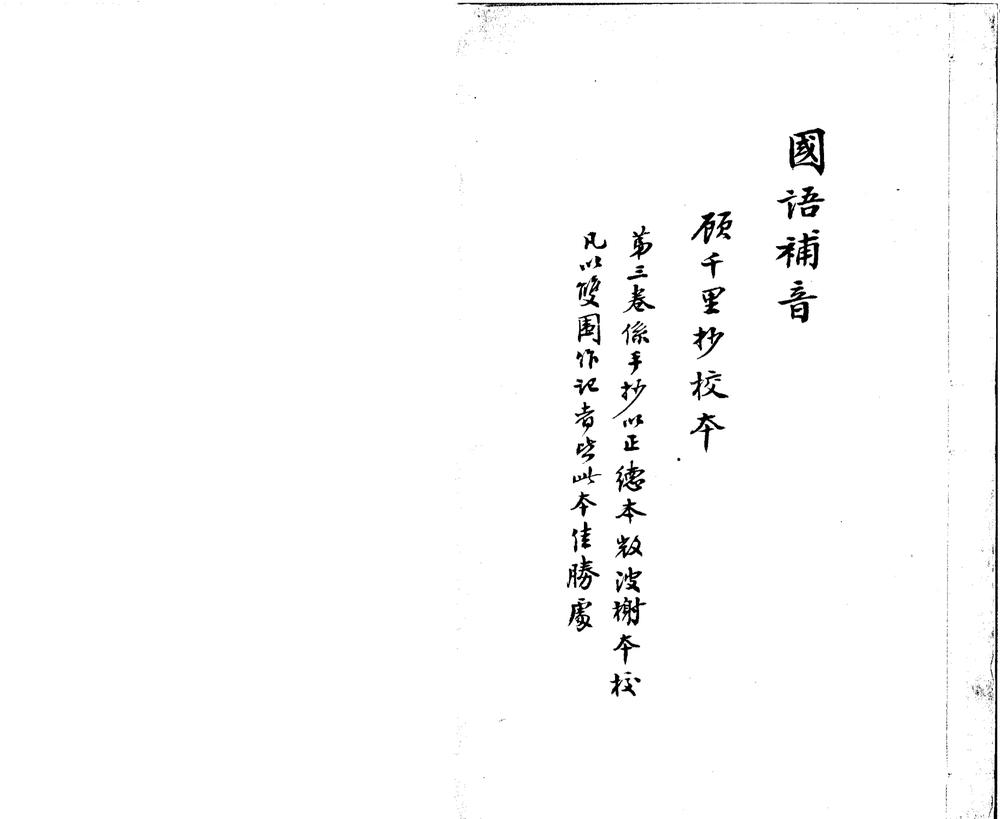 國語補音
顾千里抄校本
第三卷係手抄以正德本微波榭本校
凡以雙圍作记者皆此本佳勝處